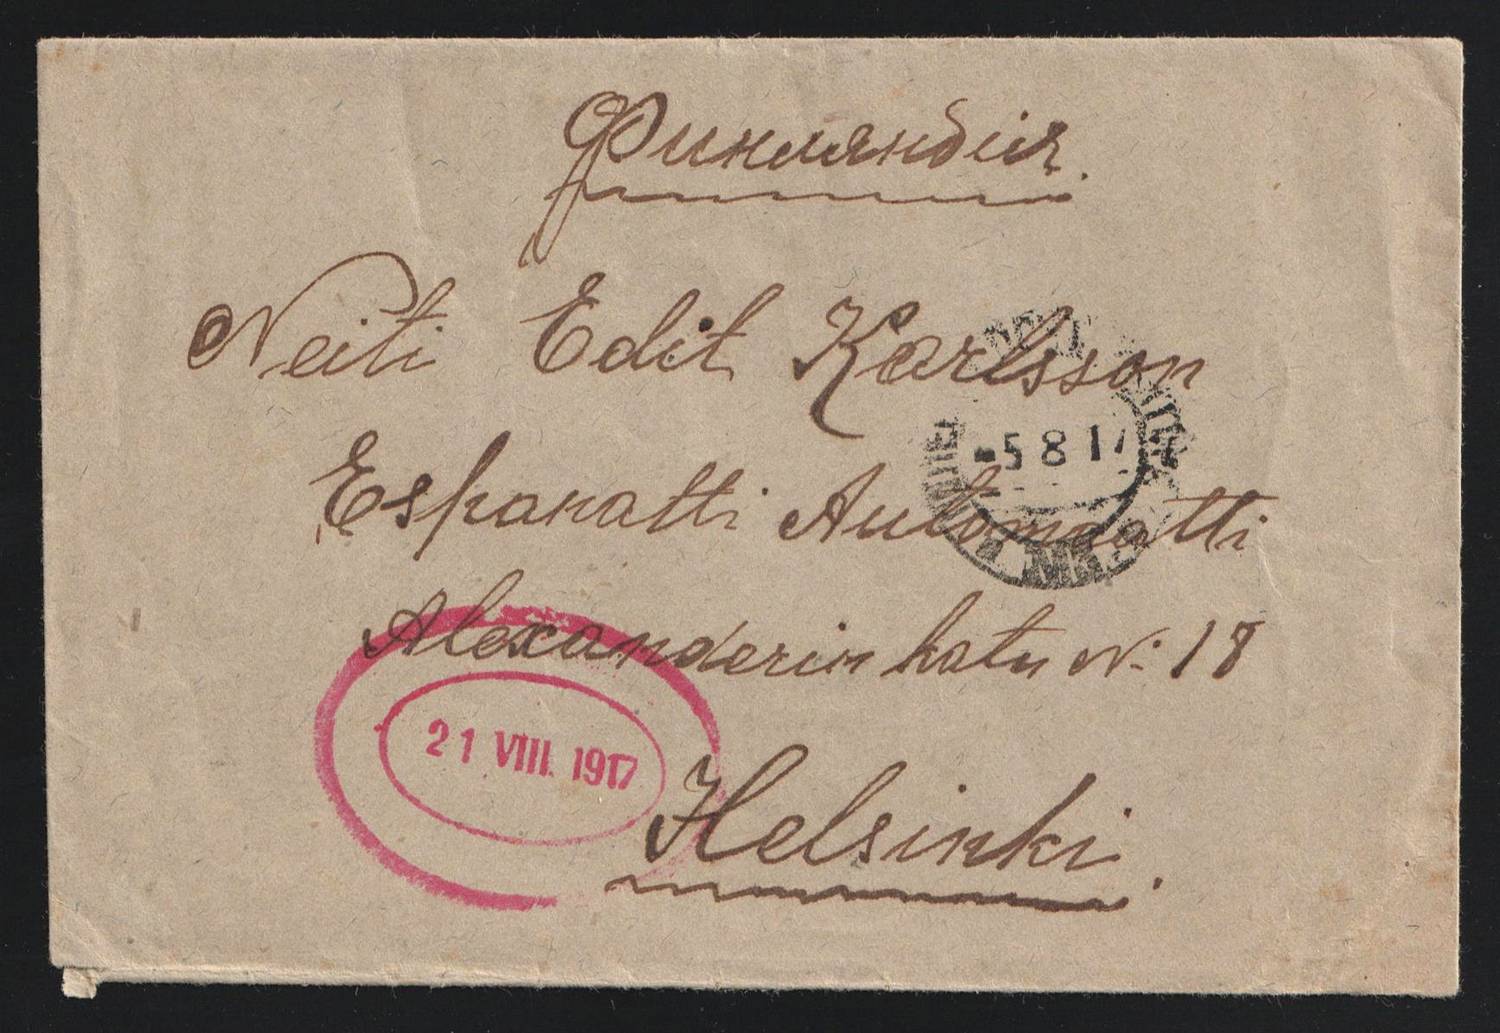 Финляндія.
Neiti Edit Karlsson
5 8 17
Esparatti Automaatti
Alexanderin katu N: 18
21 VIII. 1917
Helsinki.